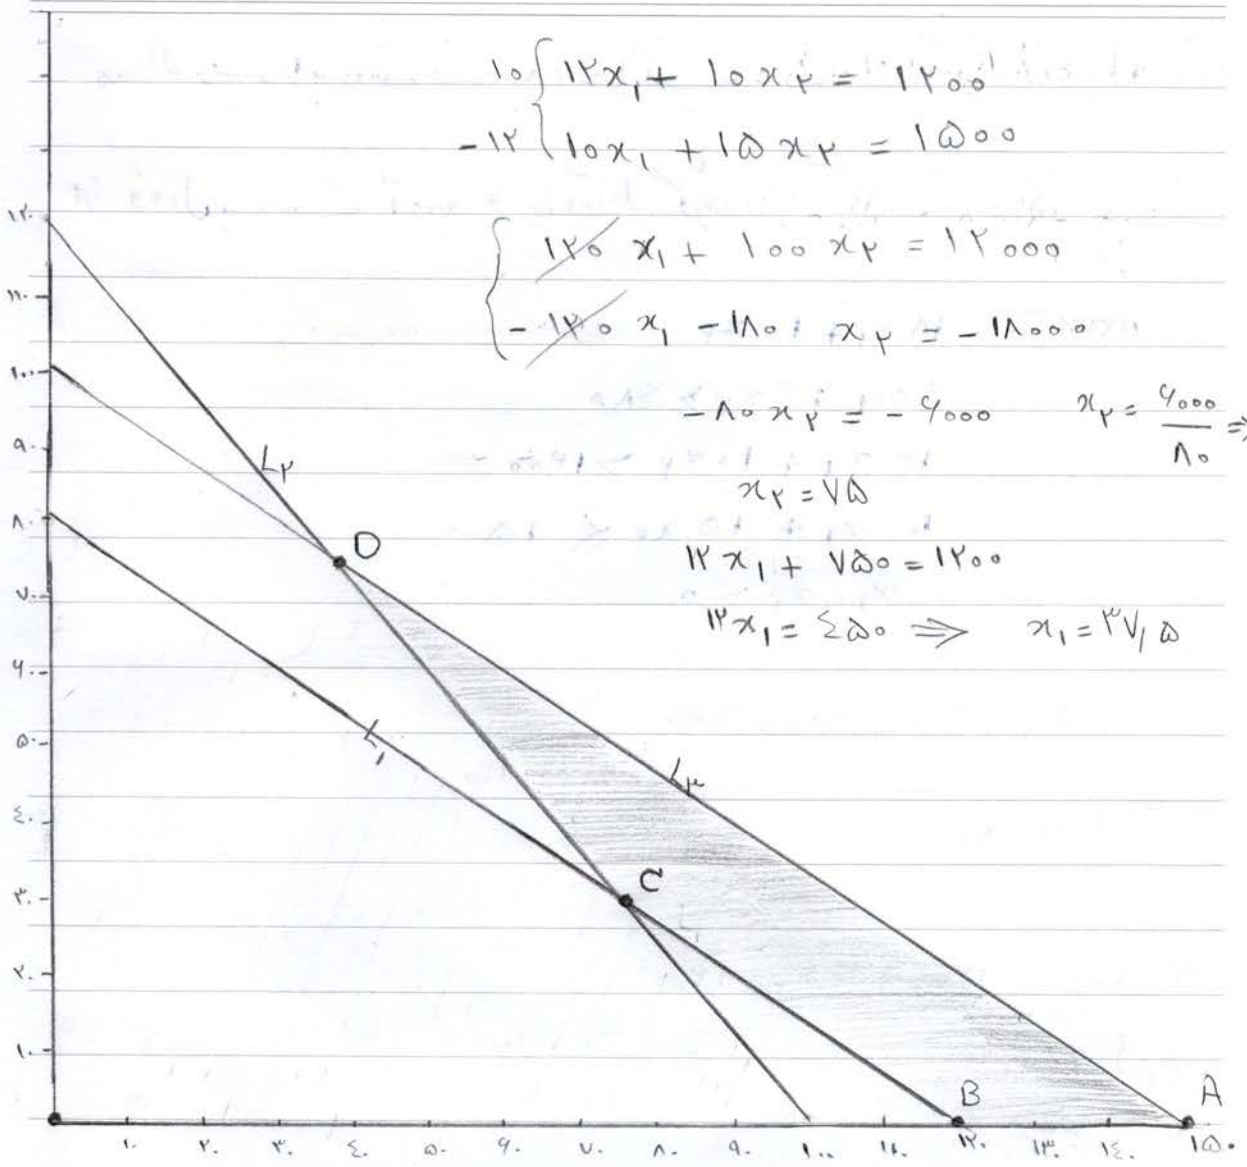 ۱۰ { ۱۲x₁ + ۱۰x₂ = ۱۲۰۰
-۱۲ { ۱۰x₁ + ۱۵x₂ = ۱۵۰۰
۱۲۰x₁ + ۱۰۰x₂ = ۱۲۰۰۰
-۱۲۰x₁ - ۱۸۰x₂ = -۱۸۰۰۰
-۸۰x₂ = -۶۰۰۰ x₂ = ۶۰۰۰/۸۰ ⇒
x₂ = ۷۵
۱۲x₁ + ۷۵۰ = ۱۲۰۰
۱۲x₁ = ۴۵۰ ⇒ x₁ = ۳۷,۵
۱۲۰
۱۱۰
۱۰۰
۹۰
۸۰
۷۰
۶۰
۵۰
۴۰
۳۰
۲۰
۱۰
L۲
D
L۱
L۳
C
B
A
۱۰ ۲۰ ۳۰ ۴۰ ۵۰ ۶۰ ۷۰ ۸۰ ۹۰ ۱۰۰ ۱۱۰ ۱۲۰ ۱۳۰ ۱۴۰ ۱۵۰